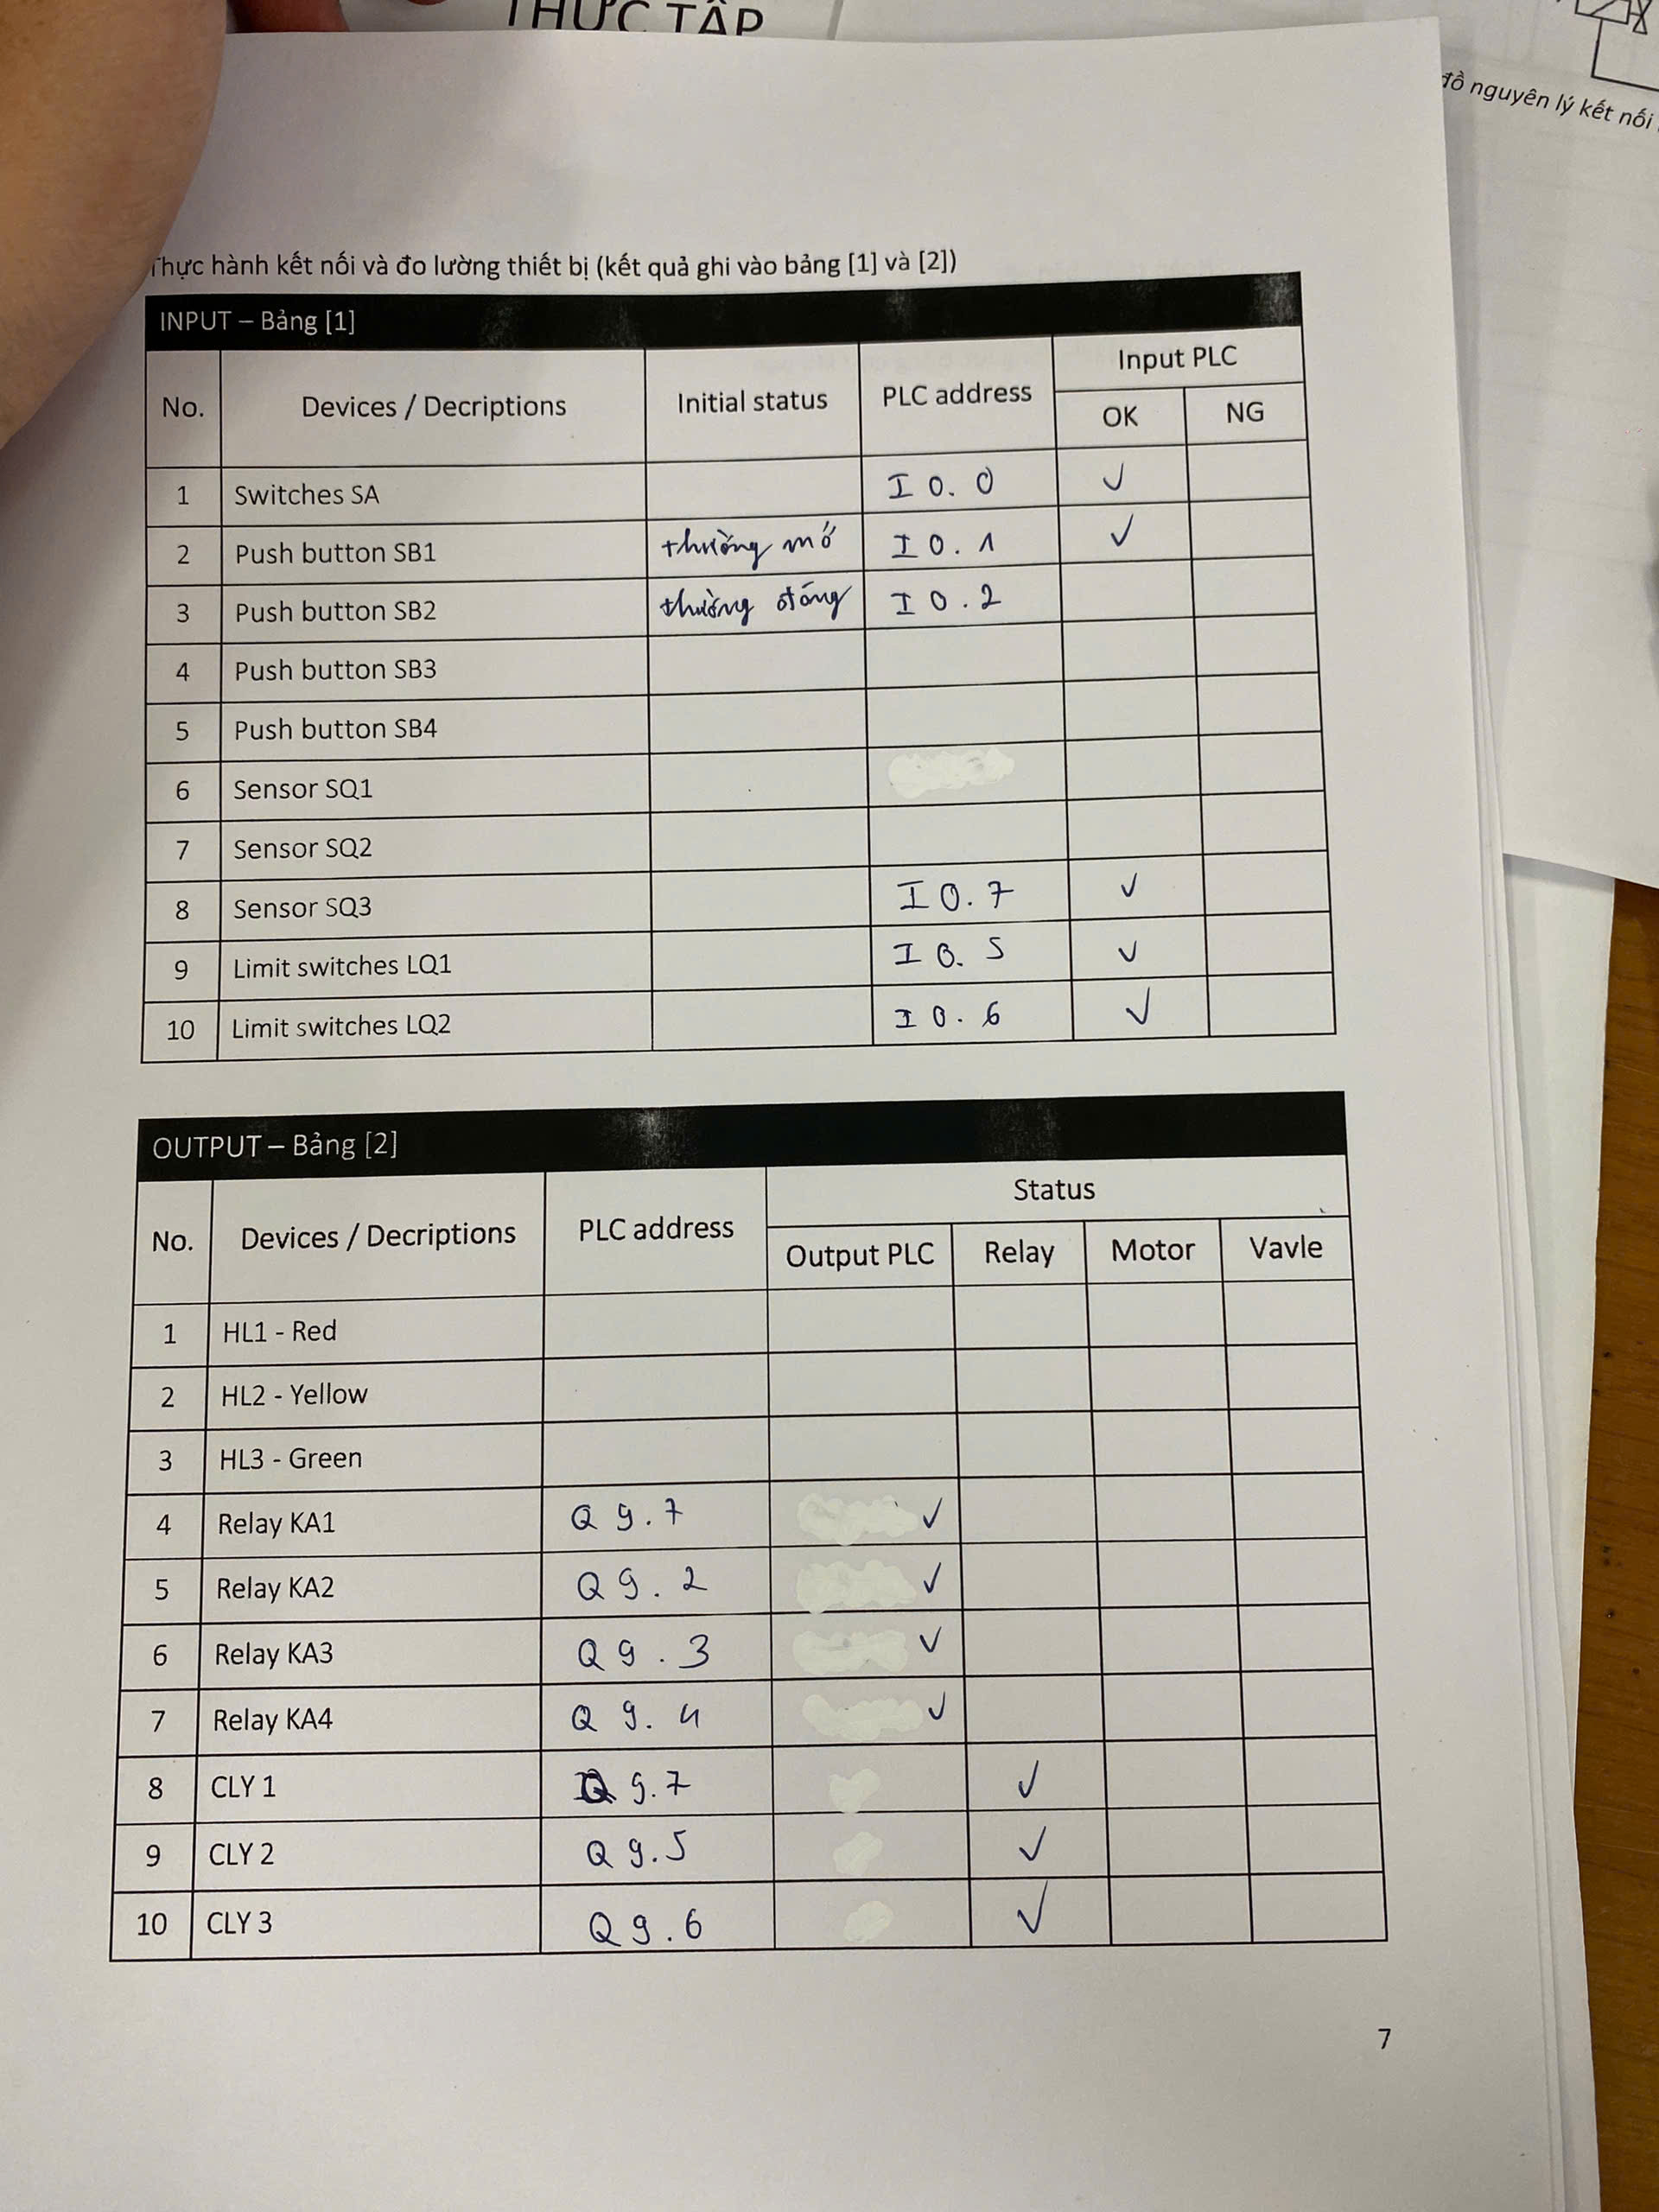 THỰC TẬP
đồ nguyên lý kết nối
Thực hành kết nối và đo lường thiết bị (kết quả ghi vào bảng [1] và [2])
INPUT – Bảng [1]
No. Devices / Decriptions Initial status PLC address Input PLC
OK NG
1 Switches SA I 0.0 ✓
2 Push button SB1 thường mở I 0.1 ✓
3 Push button SB2 thường đóng I 0.2
4 Push button SB3
5 Push button SB4
6 Sensor SQ1
7 Sensor SQ2
8 Sensor SQ3 I 0.7 ✓
9 Limit switches LQ1 I 0.5 ✓
10 Limit switches LQ2 I 0.6 ✓
OUTPUT – Bảng [2]
No. Devices / Decriptions PLC address Status
Output PLC Relay Motor Vavle
1 HL1 - Red
2 HL2 - Yellow
3 HL3 - Green
4 Relay KA1 Q 9.7 ✓
5 Relay KA2 Q 9.2 ✓
6 Relay KA3 Q 9.3 ✓
7 Relay KA4 Q 9.4 ✓
8 CLY 1 Q 9.7 ✓
9 CLY 2 Q 9.5 ✓
10 CLY 3 Q 9.6 ✓
7